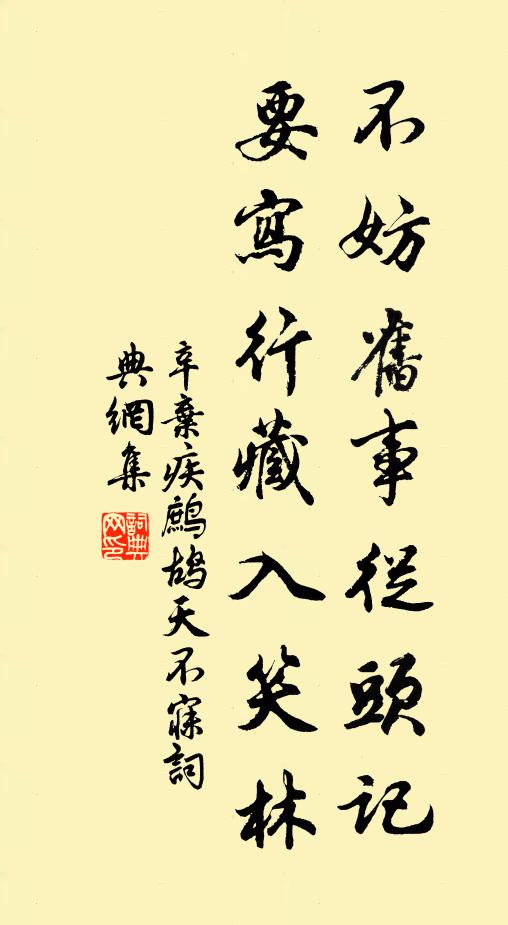 不妨舊事從頭記
要寫行藏入笑林
辛棄疾鷓鴣天不寐詞
典網集
詞典
网印